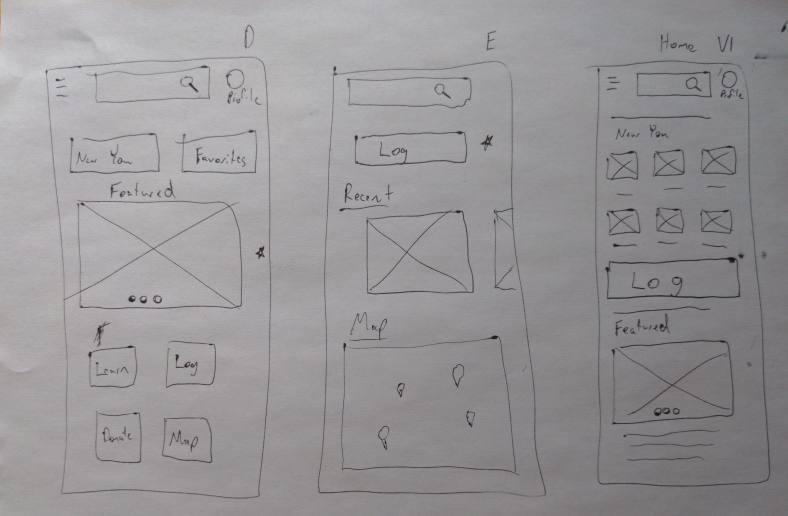 D
Profile
New You
Favorites
Featured
Learn
Log
Donate
Map
E
Log
Recent
Map
Home V1
Profile
New You
Log
Featured